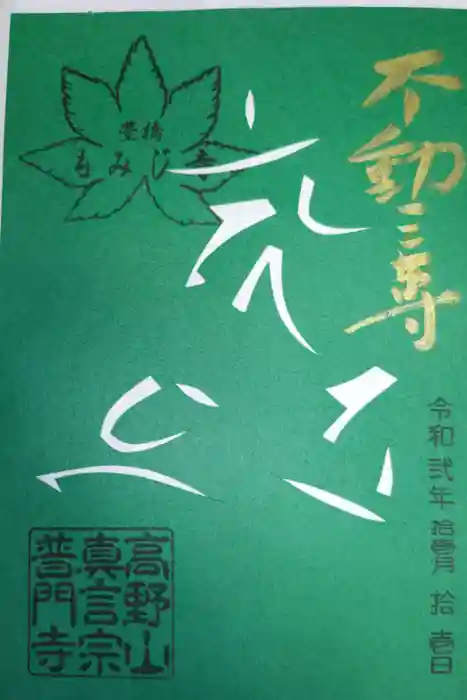 不動三尊
豊橋
もみじ寺
令和弐年拾壱月拾壱日
高野山
真言宗
普門寺